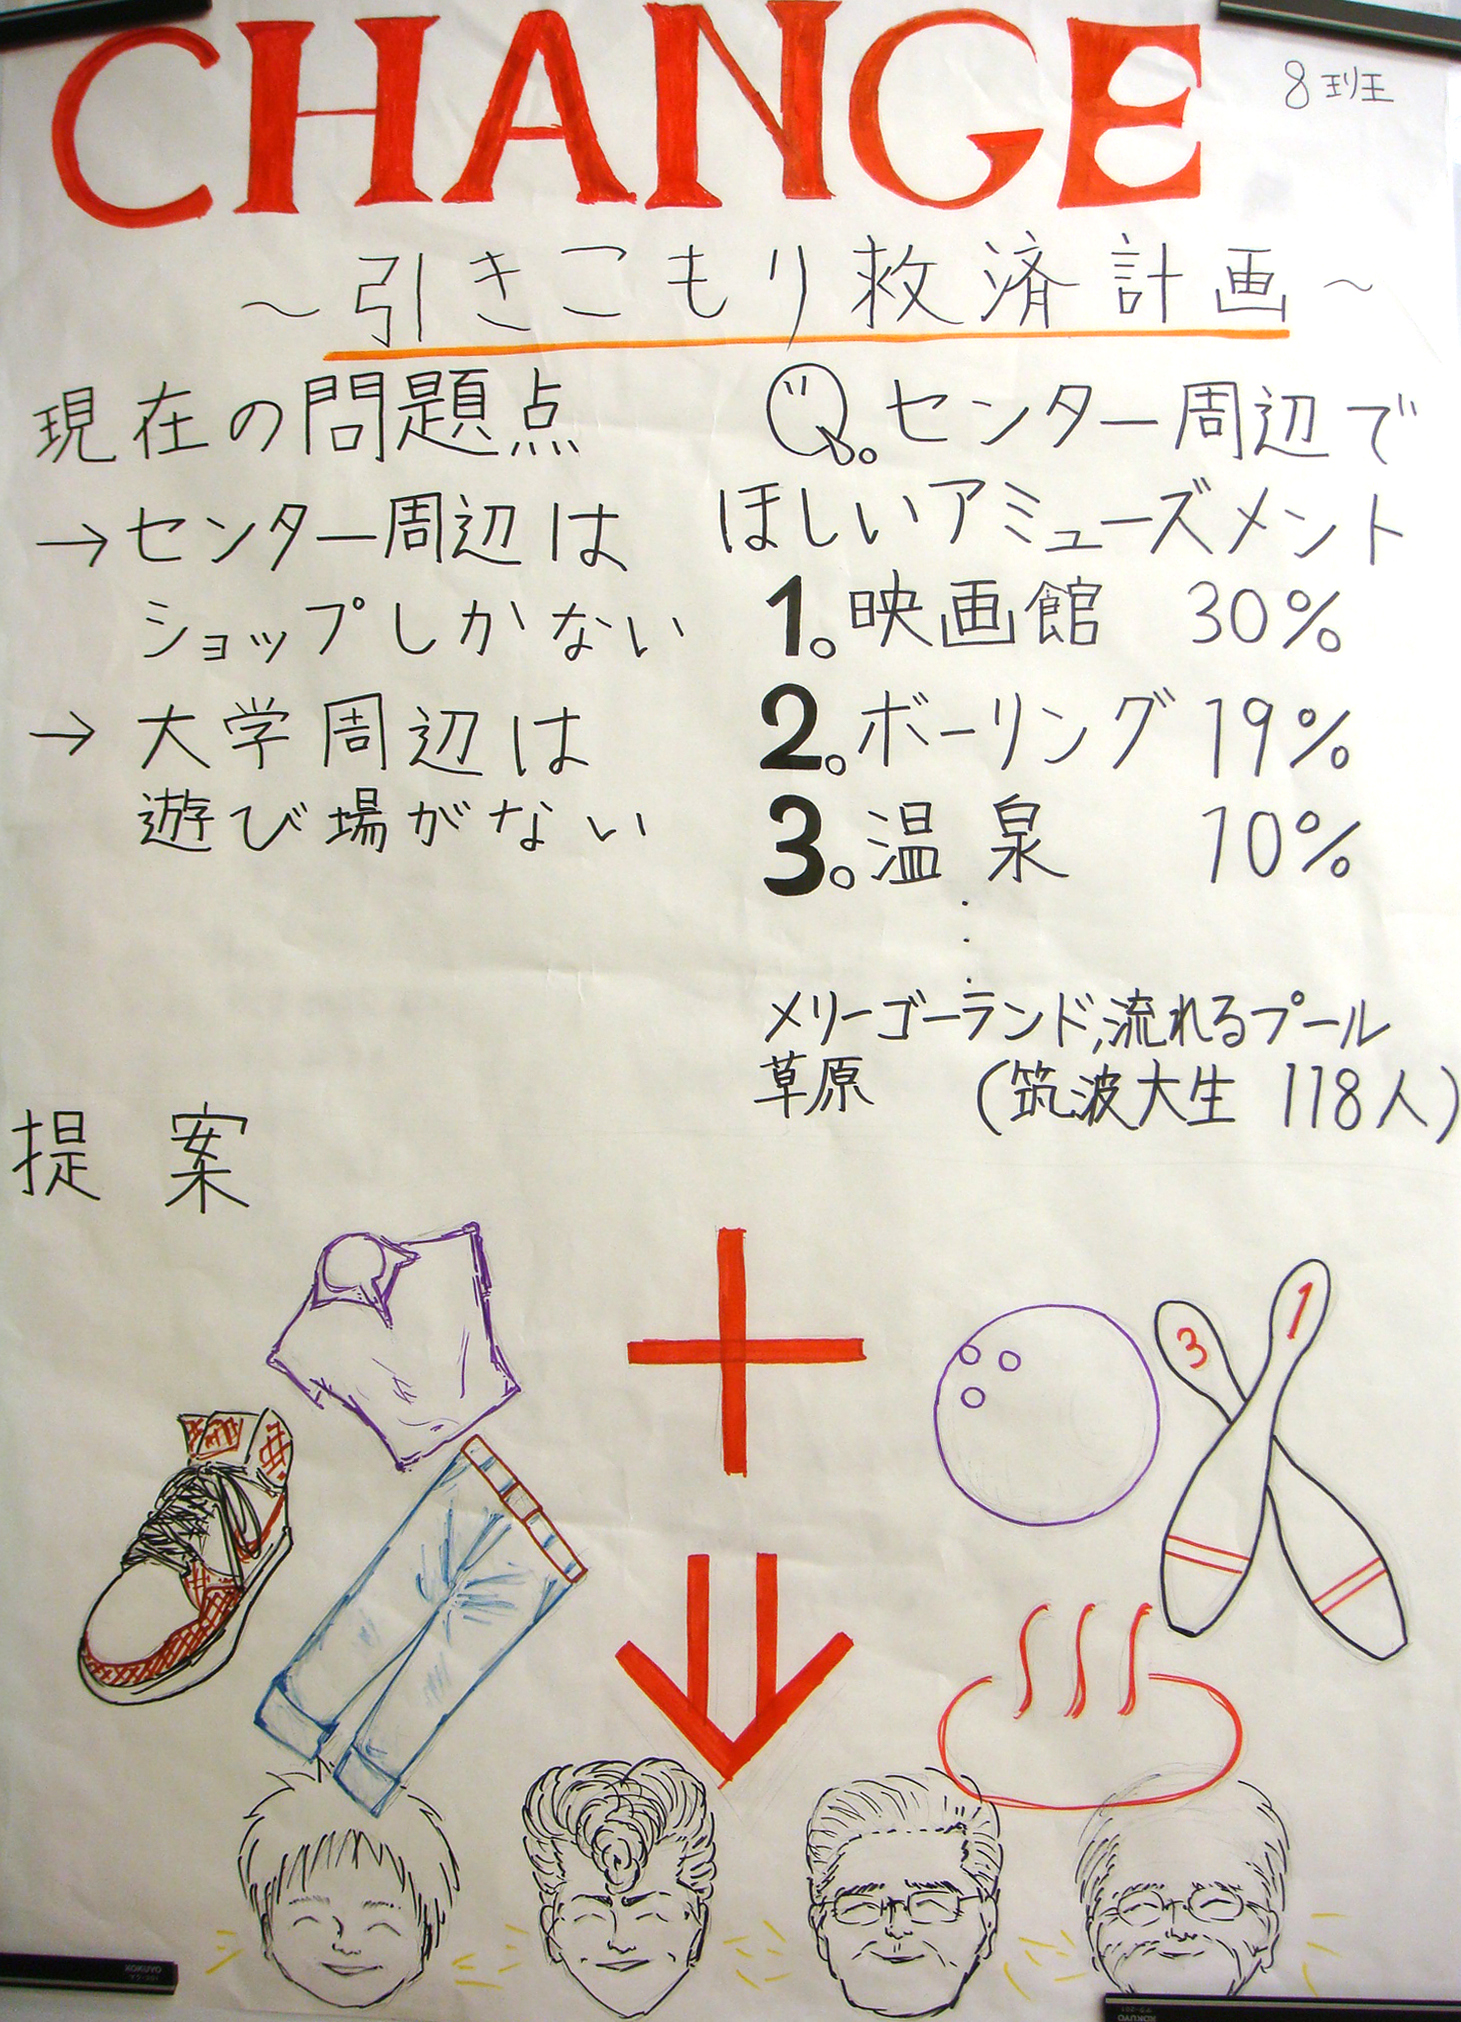 CHANGE
8班
～引きこもり救済計画～
現在の問題点
→センター周辺は
ショップしかない
→大学周辺は
遊び場がない
Q。センター周辺で
ほしいアミューズメント
1。映画館 30%
2。ボーリング 19%
3。温泉 10%
・
・
・
メリーゴーランド,流れるプール
草原 (筑波大生 118人)
提案
+
3 1
KOKUYO
KOKUYO